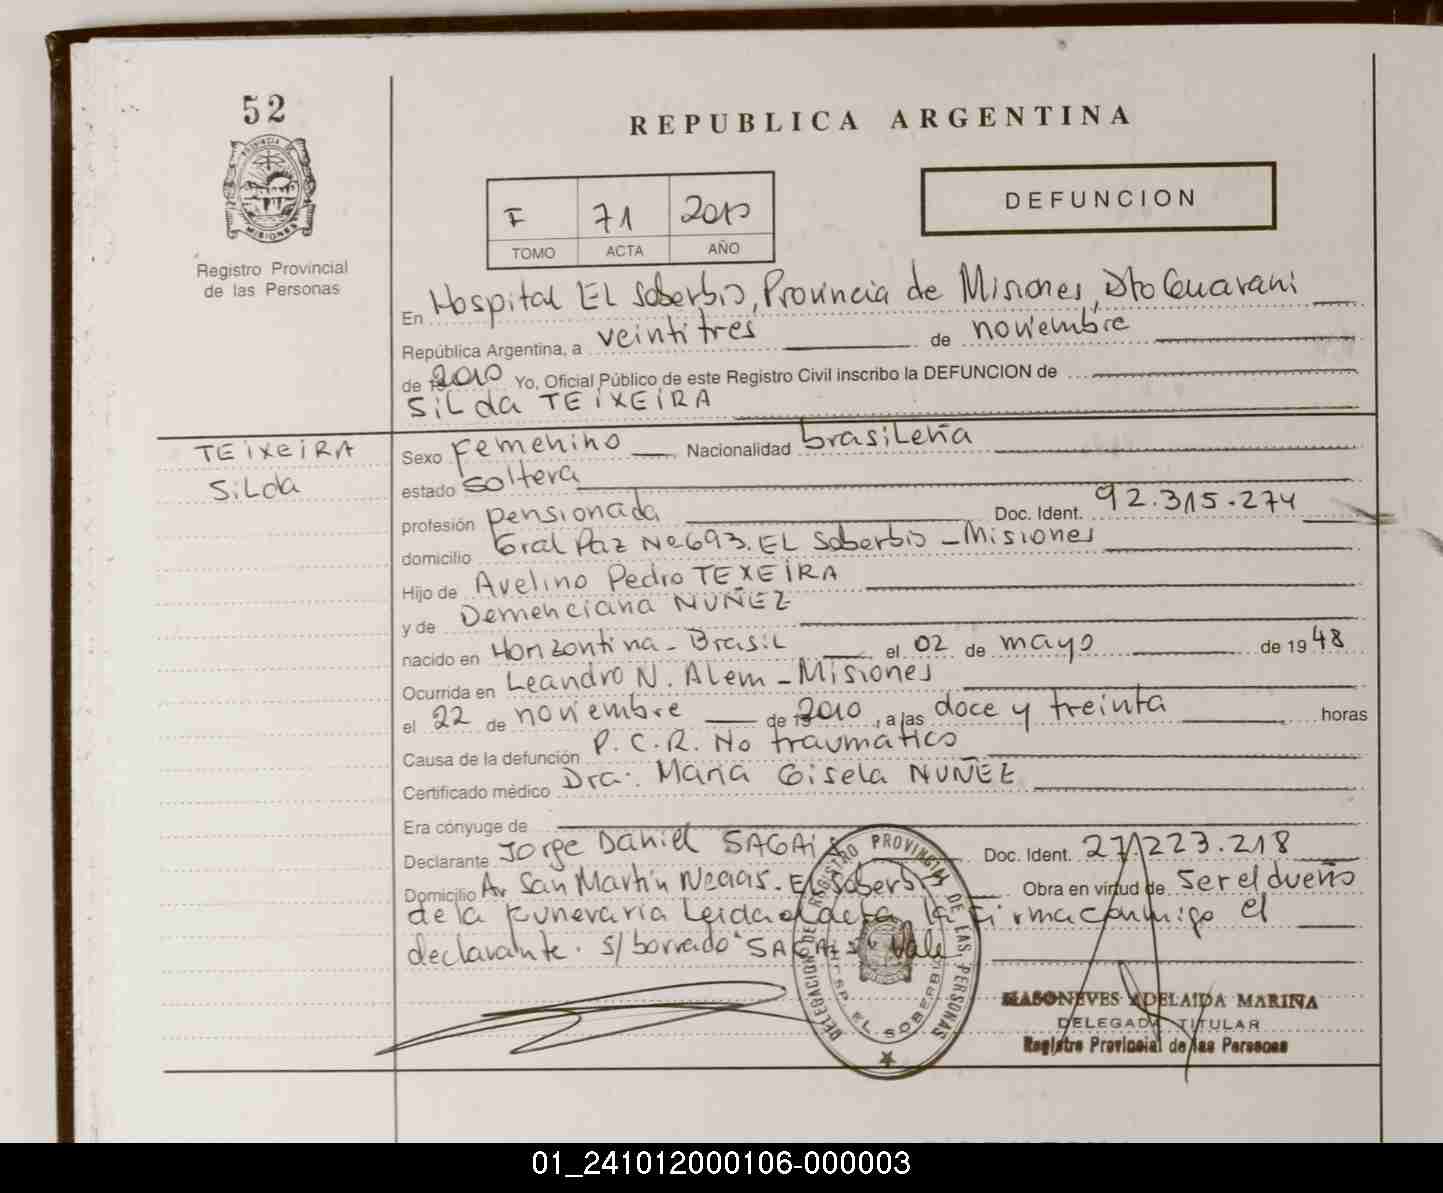 52
REPUBLICA ARGENTINA
PROVINCIA DE
MISIONES
Registro Provincial
de las Personas
F 71 2010
TOMO ACTA AÑO
DEFUNCION
En Hospital EL Soberbio, Provincia de Misiones, Dto Guarani
República Argentina, a veintitres de noviembre
de 2010 Yo, Oficial Público de este Registro Civil inscribo la DEFUNCION de
SiLda TEiXEiRA
TEiXeiRA
SiLda
Sexo Femenino Nacionalidad brasileña
estado soltera
profesión pensionada Doc. Ident. 92.315.274
domicilio Gral Paz Nº 693. EL Soberbio - Misiones
Hijo de Avelino Pedro TEXEiRA
y de Demenciana NUÑEZ
nacido en Horizontina - Brasil el 02 de mayo de 1948
Ocurrida en Leandro N. Alem - Misiones
el 22 de noviembre de 2010, a las doce y treinta horas
Causa de la defunción P.C.R. No traumatico
Certificado médico Dra. Maria Gisela NUÑEZ
Era cónyuge de
Declarante Jorge Daniel Doc. Ident. 27.223.218
Domicilio Av San Martin El Soberbio Obra en virtud de Ser el dueño
de la Funeraria Leida el acta, la firma conmigo el
declarante. s/borrado " " Vale
DELEGACION DE REGISTRO PROVINCIAL DE LAS PERSONAS
HOSP. EL SOBERBIO
MASONEVES ADELAIDA MARINA
DELEGADA TITULAR
Registro Provincial de las Personas
01_241012000106-000003